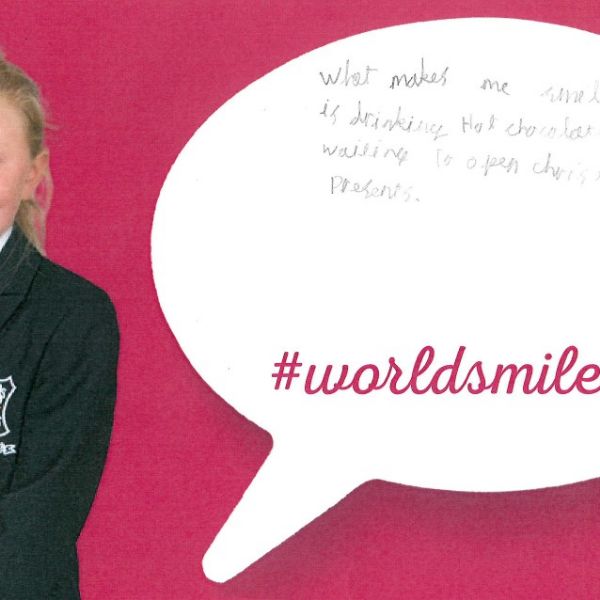 What makes me smel
is drinking Hot chocolat
waiting to open chris
Presents.
#worldsmile